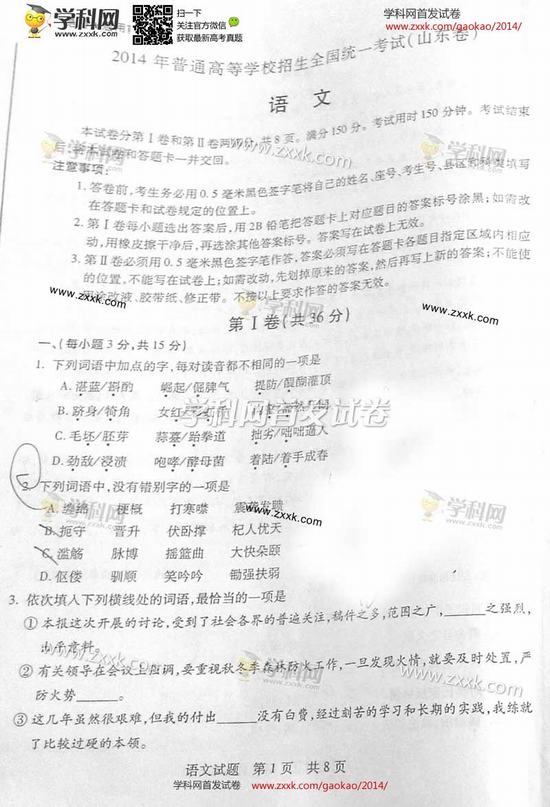 学科网
www.zxxk.com
扫一下
关注官方微信
获取最新高考真题
学科网首发试卷
www.zxxk.com/gaokao/2014/
2014 年普通高等学校招生全国统一考试(山东卷)
语 文
本试卷分第Ⅰ卷和第Ⅱ卷两部分,共8页。满分150分。考试用时150分钟。考试结束
后,将本试卷和答题卡一并交回。
注意事项:
1. 答卷前,考生务必用0.5毫米黑色签字笔将自己的姓名、座号、考生号、县区和科类填写
在答题卡和试卷规定的位置上。
2. 第Ⅰ卷每小题选出答案后,用2B铅笔把答题卡上对应题目的答案标号涂黑;如需改
动,用橡皮擦干净后,再选涂其他答案标号。答案写在试卷上无效。
3. 第Ⅱ卷必须用0.5毫米黑色签字笔作答,答案必须写在答题卡各题目指定区域内相应
的位置,不能写在试卷上;如需改动,先划掉原来的答案,然后再写上新的答案;不能使
用涂改液、胶带纸、修正带。不按以上要求作答的答案无效。
www.zxxk.com
www.zxxk.com
第Ⅰ卷(共36分)
一、(每小题3分,共15分)
1. 下列词语中加点的字,每对读音都不相同的一项是
A. 湛蓝/斟酌 崛起/倔脾气 提防/醍醐灌顶
B. 跻身/犄角 女红
学科网首发试卷
C. 毛坯/胚芽 蒜薹/跆拳道 拙劣/咄咄逼人
D. 劲敌/浸渍 咆哮/酵母菌 着陆/着手成春
2. 下列词语中,没有错别字的一项是
学科网
www.zxxk.com
A. 缠绵 梗概 打寒噤 震聋发聩
www.zxxk.com
B. 扼守 晋升 伏卧撑 杞人忧天
C. 滥觞 脉博 摇篮曲 大快朵颐
D. 伛偻 驯顺 笑吟吟 锄强扶弱
3. 依次填入下列横线处的词语,最恰当的一项是
①本报这次开展的讨论,受到了社会各界的普遍关注,稿件之多,范围之广,______之强烈,
出乎意料。
②有关领导在会议上强调,要重视秋冬季森林防火工作,一旦发现火情,就要及时处置,严
防火势______。
www.zxxk.com
www.zxxk.com
③这几年虽然很艰难,但我的付出______没有白费,经过刻苦的学习和长期的实践,我练就
了比较过硬的本领。
语文试题 第1页 共8页
学科网首发试卷
www.zxxk.com/gaokao/2014/